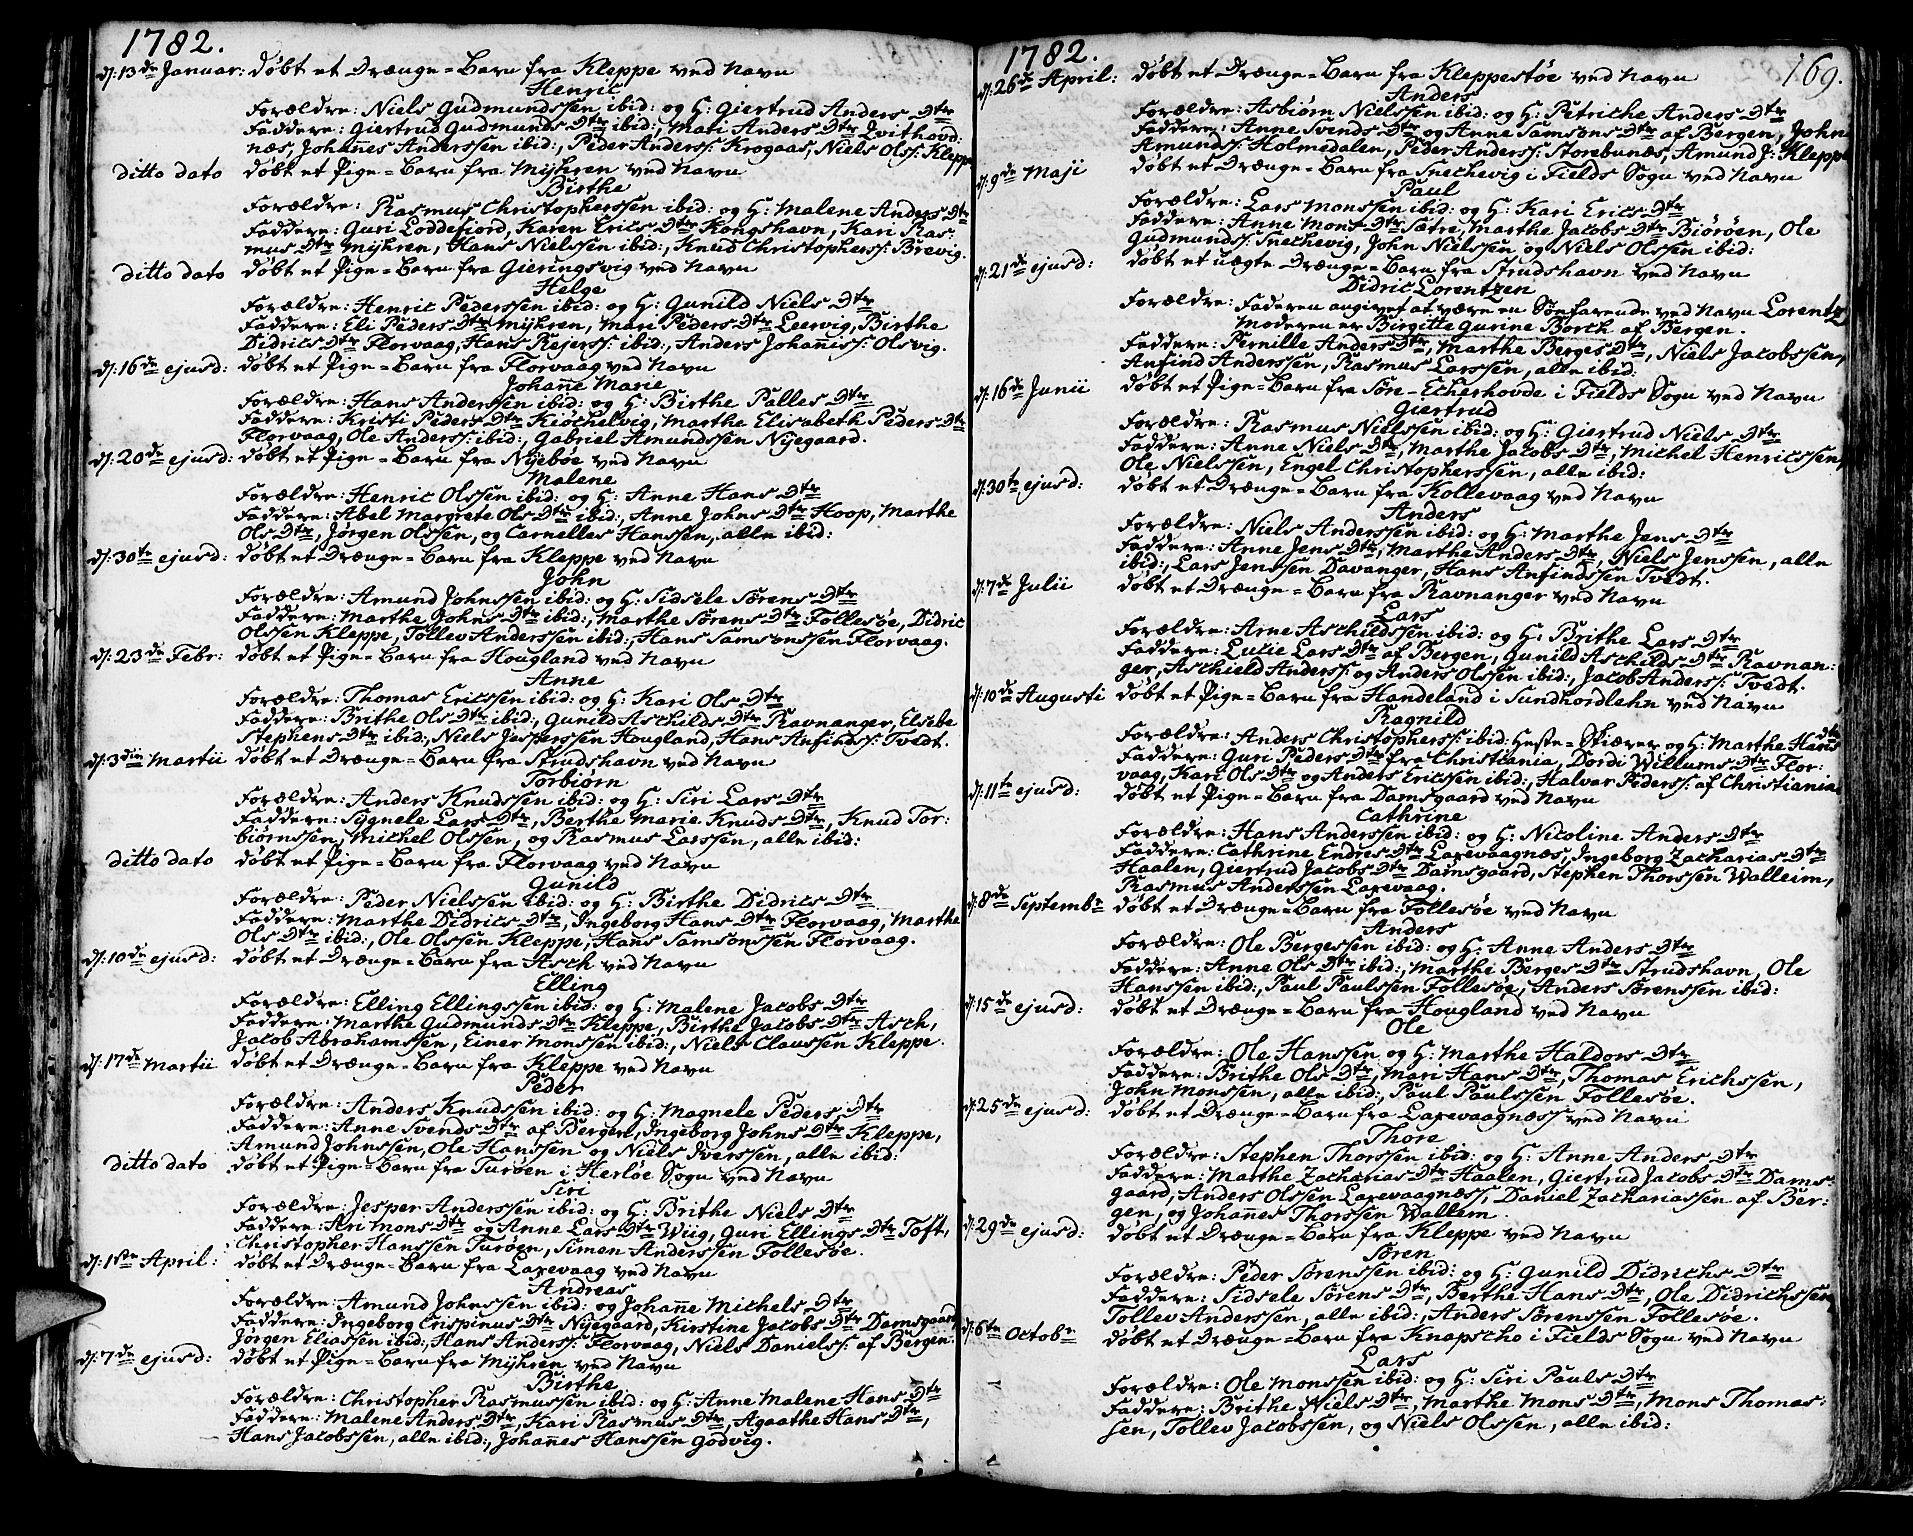 1782.
d: 13de Januar: døbt et Drænge-Barn fra Kleppe ved Navn
Henric
Forældre: Niels Gudmundssen ibid: og H: Giertrud Anders Dtr
Faddere: Giertrud Gudmunds Dtr ibid:, Mari Anders Dtr Qvithovd:
næs, Johan̄es Anderssen ibid:, Peder Anderss: Krogaas, Niels Olss: Kleppe
ditto dato døbt et Pige-Barn fra Mÿhren ved Navn
Birthe
Forældre: Rasmus Christopherssen ibid: og H: Malene Anders Dtr
Faddere: Guri Loddefiord, Karen Erics Dtr Kongshavn, Kari Ras-
mus Dtr Mÿhren, Hans Nielssen ibid:, Knud Christopherss: Brevig.
ditto dato døbt et Pige-Barn fra Gieringsvig ved Navn
Helge
Forældre: Henric Pederssen ibid: og H: Gunild Niels Dtr
Faddere: Eli Peders Dtr Mÿhren, Mari Peders Dtr Leervig, Birthe
Didrics Dtr Florvaag, Hans Rejerss: ibid:, Anders Johan̄iss: Olsvig.
d: 16de ejusd: døbt et Pige-Barn fra Florvaag ved Navn
Johan̄e Marie
Forældre: Hans Anderssen ibid: og H: Birthe Palles Dtr
Faddere: Kristi Peders Dtr Kiöchelvig, Marthe Elisabeth Peders Dtr
Florvaag, Ole Anderss: ibid:, Gabriel Amundssen Nÿegaard.
d: 20de ejusd: døbt et Pige-Barn fra Nÿebøe ved Navn
Malene
Forældre: Henric Olssen ibid: og H: Anne Hans Dtr
Faddere: Abel Margrete Ols Dtr ibid:, Anne Johns Dtr Hoop, Marthe
Ols Dtr, Jørgen Olssen, og Carnelles Hanssen, alle ibid:
d: 30te ejusd: døbt et Drænge-Barn fra Kleppe ved Navn
John
Forældre: Amund Johnssen ibid: og H: Sidsele Sørens Dtr
Faddere: Marthe Johns Dtr ibid:, Marthe Sørens Dtr Follesøe, Didric
Olssen Kleppe, Tollev Anderssen ibid:, Hans Samsonssen Florvaag.
d: 23de Febr: døbt et Pige-Barn fra Hougland ved Navn
Anne
Forældre: Thomas Ericssen ibid: og H: Kari Ols Dtr
Faddere: Brithe Ols Dtr ibid:, Gunild Aschilds Dtr Ravnanger, Elsebe
Stephens Dtr ibid:, Niels Jesperssen Hougland, Hans Anfindss: Tvedt.
d: 3die Martii døbt et Drænge-Barn fra Strudshavn ved Navn
Torbiørn
Forældre: Anders Knudssen ibid: og H: Siri Lars Dtr
Faddere: Sygnele Lars Dtr, Berthe Marie Knuds Dtr, Knud Tor-
biørnssen, Michel Olssen, og Rasmus Larssen, alle ibid:
ditto dato døbt et Pige-Barn fra Florvaag ved Navn
Gunild
Forældre: Peder Nielssen ibid: og H: Birthe Didrics Dtr
Faddere: Marthe Didrics Dtr, Ingeborg Hans Dtr Florvaag, Marthe
Ols Dtr ibid:, Ole Olssen Kleppe, Hans Samsonssen Florvaag.
d: 10de ejusd: døbt et Drænge-Barn fra Asch ved Navn
Elling
Forældre: Elling Ellingssen ibid: og H: Malene Jacobs Dtr
Faddere: Marthe Gudmunds Dtr Kleppe, Birthe Jacobs Dtr Asch,
Jacob Abrahamssen, Einer Monssen ibid:, Niels Claussen Kleppe.
d: 17de Martii døbt et Drænge-Barn fra Kleppe ved Navn
Peder
Forældre: Anders Knudssen ibid: og H: Magnele Peders Dtr
Faddere: Anne Svends Dtr af Bergen, Ingeborg Johns Dtr Kleppe,
Amund Johnssen, Ole Hanssen og Niels Iverssen, alle ibid:
ditto dato døbt et Pige-Barn fra Turøen i Herløe Sogn ved Navn
Siri
Forældre: Jesper Anderssen ibid: og H: Brithe Niels Dtr
Faddere: Ari Mons Dtr og Anne Lars Dtr Wiig, Guri Ellings Dtr Toft,
Christopher Hanssen Turøen, Simen Anderssen Follesøe.
d: 1ste April: døbt et Drænge-Barn fra Laxevaag ved Navn
Andreas
Forældre: Amund Johnssen ibid: og Johan̄e Michels Dtr
Faddere: Ingeborg Crispinus Dtr Nÿegaard, Kirstine Jacobs Dtr Damsgaard,
Jørgen Eliassen ibid:, Hans Anderss: Florvaag, Niels Daniels: af Bergen.
d: 7de ejusd: døbt et Pige-Barn fra Mÿhren ved Navn
Birthe
Forældre: Christopher Rasmussen ibid: og H: Anne Malene Hans Dtr
Faddere: Malene Anders Dtr, Kari Rasmus Dtr, Agaathe Hans Dtr,
Hans Jacobssen, alle ibid:, Johan̄es Hanssen Godvig.
1782. 169.
d: 26de April: døbt et Drænge-Barn fra Kleppestøe ved Navn
Anders
Forældre: Asbiørn Nielssen ibid: og H: Petriche Anders Dtr
Faddere: Anne Svends Dtr og Anne Samsons Dtr af Bergen, John
Amundss: Holmedalen, Peder Anderss: Storebunæs, Amund J: Kleppe
d: 9de Maji døbt et Drænge-Barn fra Snechevig i Fields Sogn ved Navn
Paul
Forældre: Lars Monssen ibid: og H: Kari Erics Dtr
Faddere: Anne Mons Dtr Sætre, Marthe Jacobs Dtr Biørøen, Ole
Gudmundss: Snechevig, John Nielssen og Niels Olssen ibid:
d: 21de ejusd: døbt et uægte Drænge-Barn fra Strudshavn ved Navn
Didric Lorentzen
Forældre: Faderen angivet at være en Søefarende ved Navn Lorentz
Moderen er Birgitte Gurine Borch af Bergen.
Faddere: Pernille Anders Dtr, Marthe Berges Dtr, Niels Jacobssen,
Anfind Anderssen, Rasmus Larssen, alle ibid:
d: 16de Junii døbt et Pige-Barn fra Søre-Echerhovde i Fields Sogn ved Navn
Giertrud
Forældre: Rasmus Nielssen ibid: og H: Giertrud Niels Dtr
Faddere: Anne Niels Dtr, Marthe Jacobs Dtr, Michel Henricssen,
Ole Nielssen, Engel Christopherssen, alle ibid:
d: 30te ejusd: døbt et Drænge-Barn fra Kollevaag ved Navn
Anders
Forældre: Niels Anderssen ibid: og H: Marthe Jens Dtr
Faddere: Anne Jens Dtr, Marthe Anders Dtr, Niels Jenssen, alle
ibid:, Lars Jenssen Davanger, Hans Anfindssen Tvedt.
d: 7de Julii døbt et Drænge-Barn fra Ravnanger ved Navn
Lars
Forældre: Arne Aschildssen ibid: og H: Brithe Lars Dtr
Faddere: Lucie Lars Dtr af Bergen, Gunild Aschilds Dtr Ravnan:
ger, Aschield Anderss: og Anders Olssen ibid:, Jacob Anderss: Tvedt.
d: 10de Augusti døbt et Pige-Barn fra Handeland i Sundhordlehn ved Navn
Ragnild
Forældre: Anders Christopherss: ibid: Heste-Skiærer og H: Marthe Hans Dtr
Faddere: Guri Peders Dtr fra Christiania, Dordi Willums Dtr Flor:
vaag, Kari Ols Dtr og Anders Ericssen ibid:, Halvar Pederss: af Christiania
d: 11te ejusd: døbt et Pige-Barn fra Damsgaard ved Navn
Cathrine
Forældre: Hans Anderssen ibid: og H: Nicoline Anders Dtr
Faddere: Cathrine Endres Dtr Laxevaagnæs, Ingeborg Zacharias Dtr
Haalen, Giertrud Jacobs Dtr Damsgaard, Stephen Thorssen Walleim,
Rasmus Anderssen Laxevaag.
d: 8de Septembr døbt et Drænge-Barn fra Follesøe ved Navn
Anders
Forældre: Ole Bergessen ibid: og H: Anne Anders Dtr
Faddere: Anne Ols Dtr ibid:, Marthe Berges Dtr Strudshavn, Ole
Hanssen ibid:, Paul Paulssen Follesøe, Anders Sørenssen ibid:
d: 15de ejusd: døbt et Drænge-Barn fra Hougland ved Navn
Ole
Forældre: Ole Hanssen og H: Marthe Haldors Dtr
Faddere: Brithe Ols Dtr, Mari Hans Dtr, Thomas Erichssen,
John Monssen, alle ibid:, Paul Paulssen Follesøe.
d: 25de ejusd: døbt et Drænge-Barn fra Laxevaagnæss ved Navn
Thore
Forældre: Stephen Thorssen ibid: og H: Anne Anders Dtr
Faddere: Marthe Zacharias Dtr Haalen, Giertrud Jacobs Dtr Dams-
gaard, Anders Olssen Laxevaagnæss, Daniel Zachariassen af Ber-
gen, og Johan̄es Thorssen Wallem.
d: 29de ejusd: døbt et Drænge-Barn fra Kleppe ved Navn
Søren
Forældre: Peder Sørenssen ibid: og H: Gunild Didrichs Dtr
Faddere: Sidsele Sørens Dtr, Berthe Hans Dtr, Ole Didrichssen
Tollev Anderssen, alle ibid:, Anders Sørenssen Follesøe.
d: 6te Octobr døbt et Drænge-Barn fra Knapscho i Fields Sogn ved Navn
Lars
Forældre: Ole Monssen ibid: og H: Siri Pauls Dtr
Faddere: Brithe Niels Dtr, Marthe Mons Dtr, Mons Thomas:
sen, Tollev Jacobssen, og Niels Olssen, alle ibid: